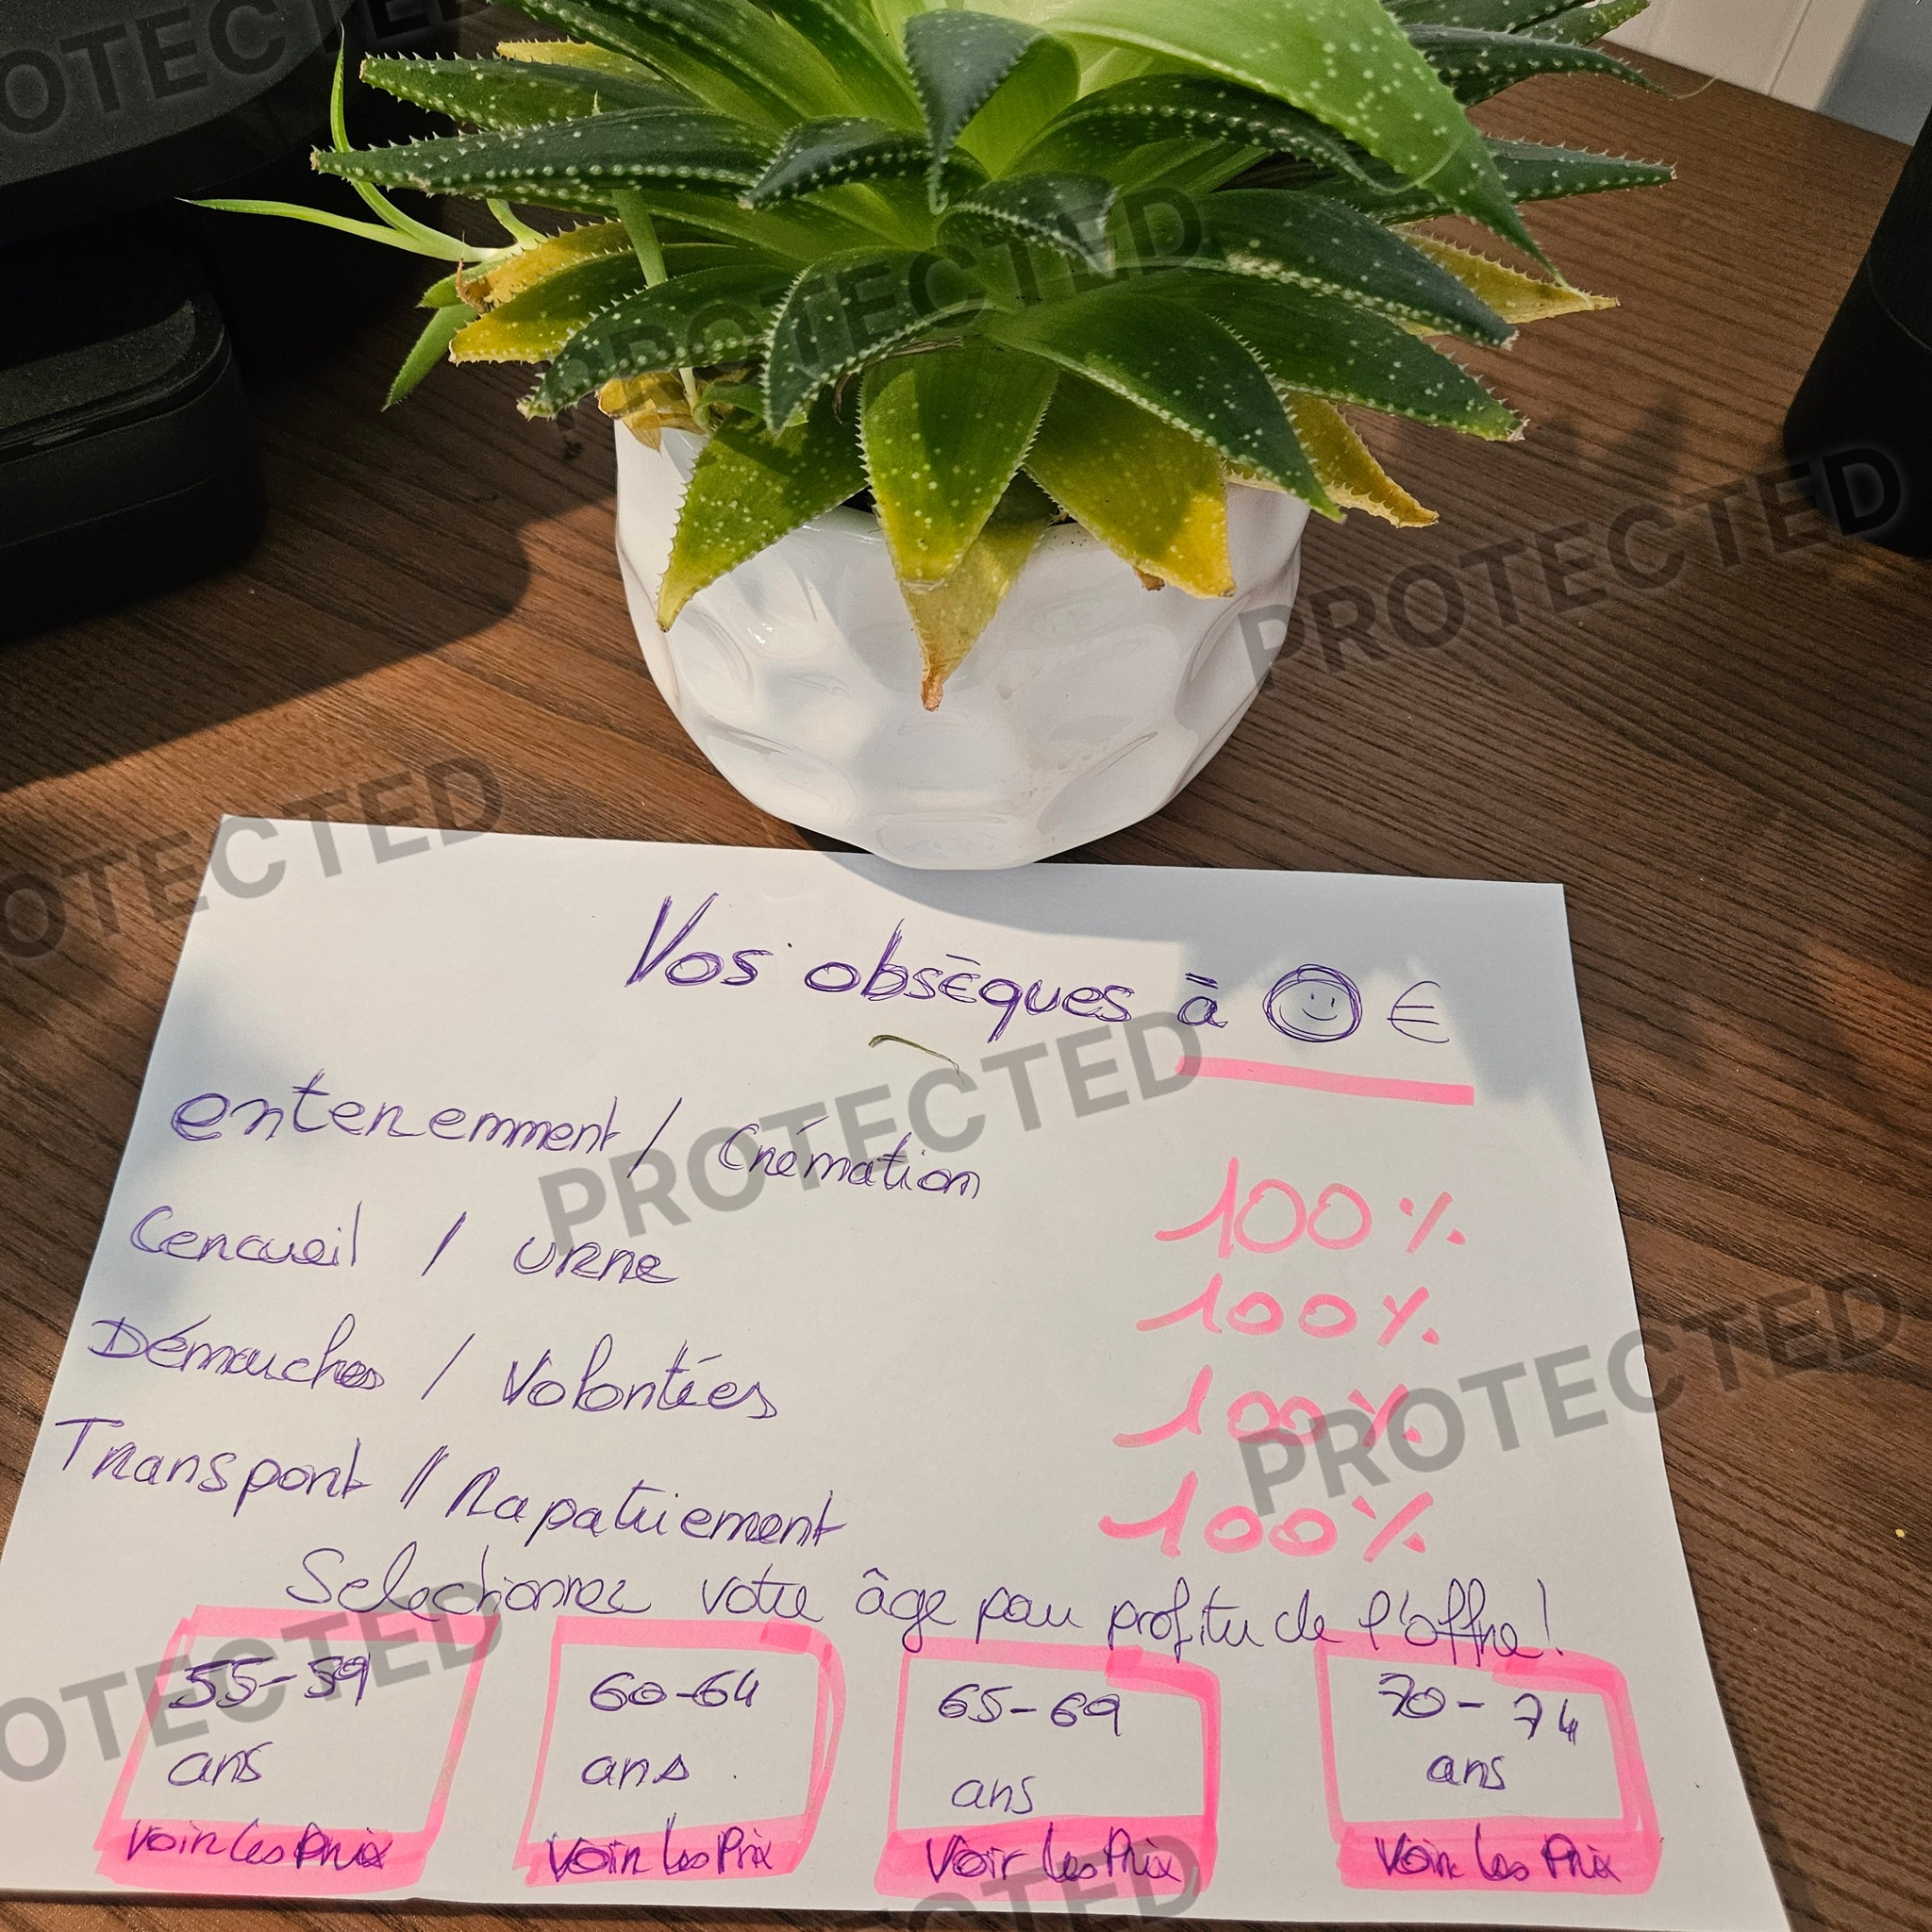 Vos obsèques à € 
enterremment / Crémation 100%
Cercueil / urne 100%
Démarches / Volontées 100%
Transport // Rapatriement 100%
Selectionnez votre âge pour profiter de l'offre!
55-59 60-64 65-69 70-74
ans ans ans ans
Voir les Prix Voir les Prix Voir les Prix Voir les Prix
PROTECTED